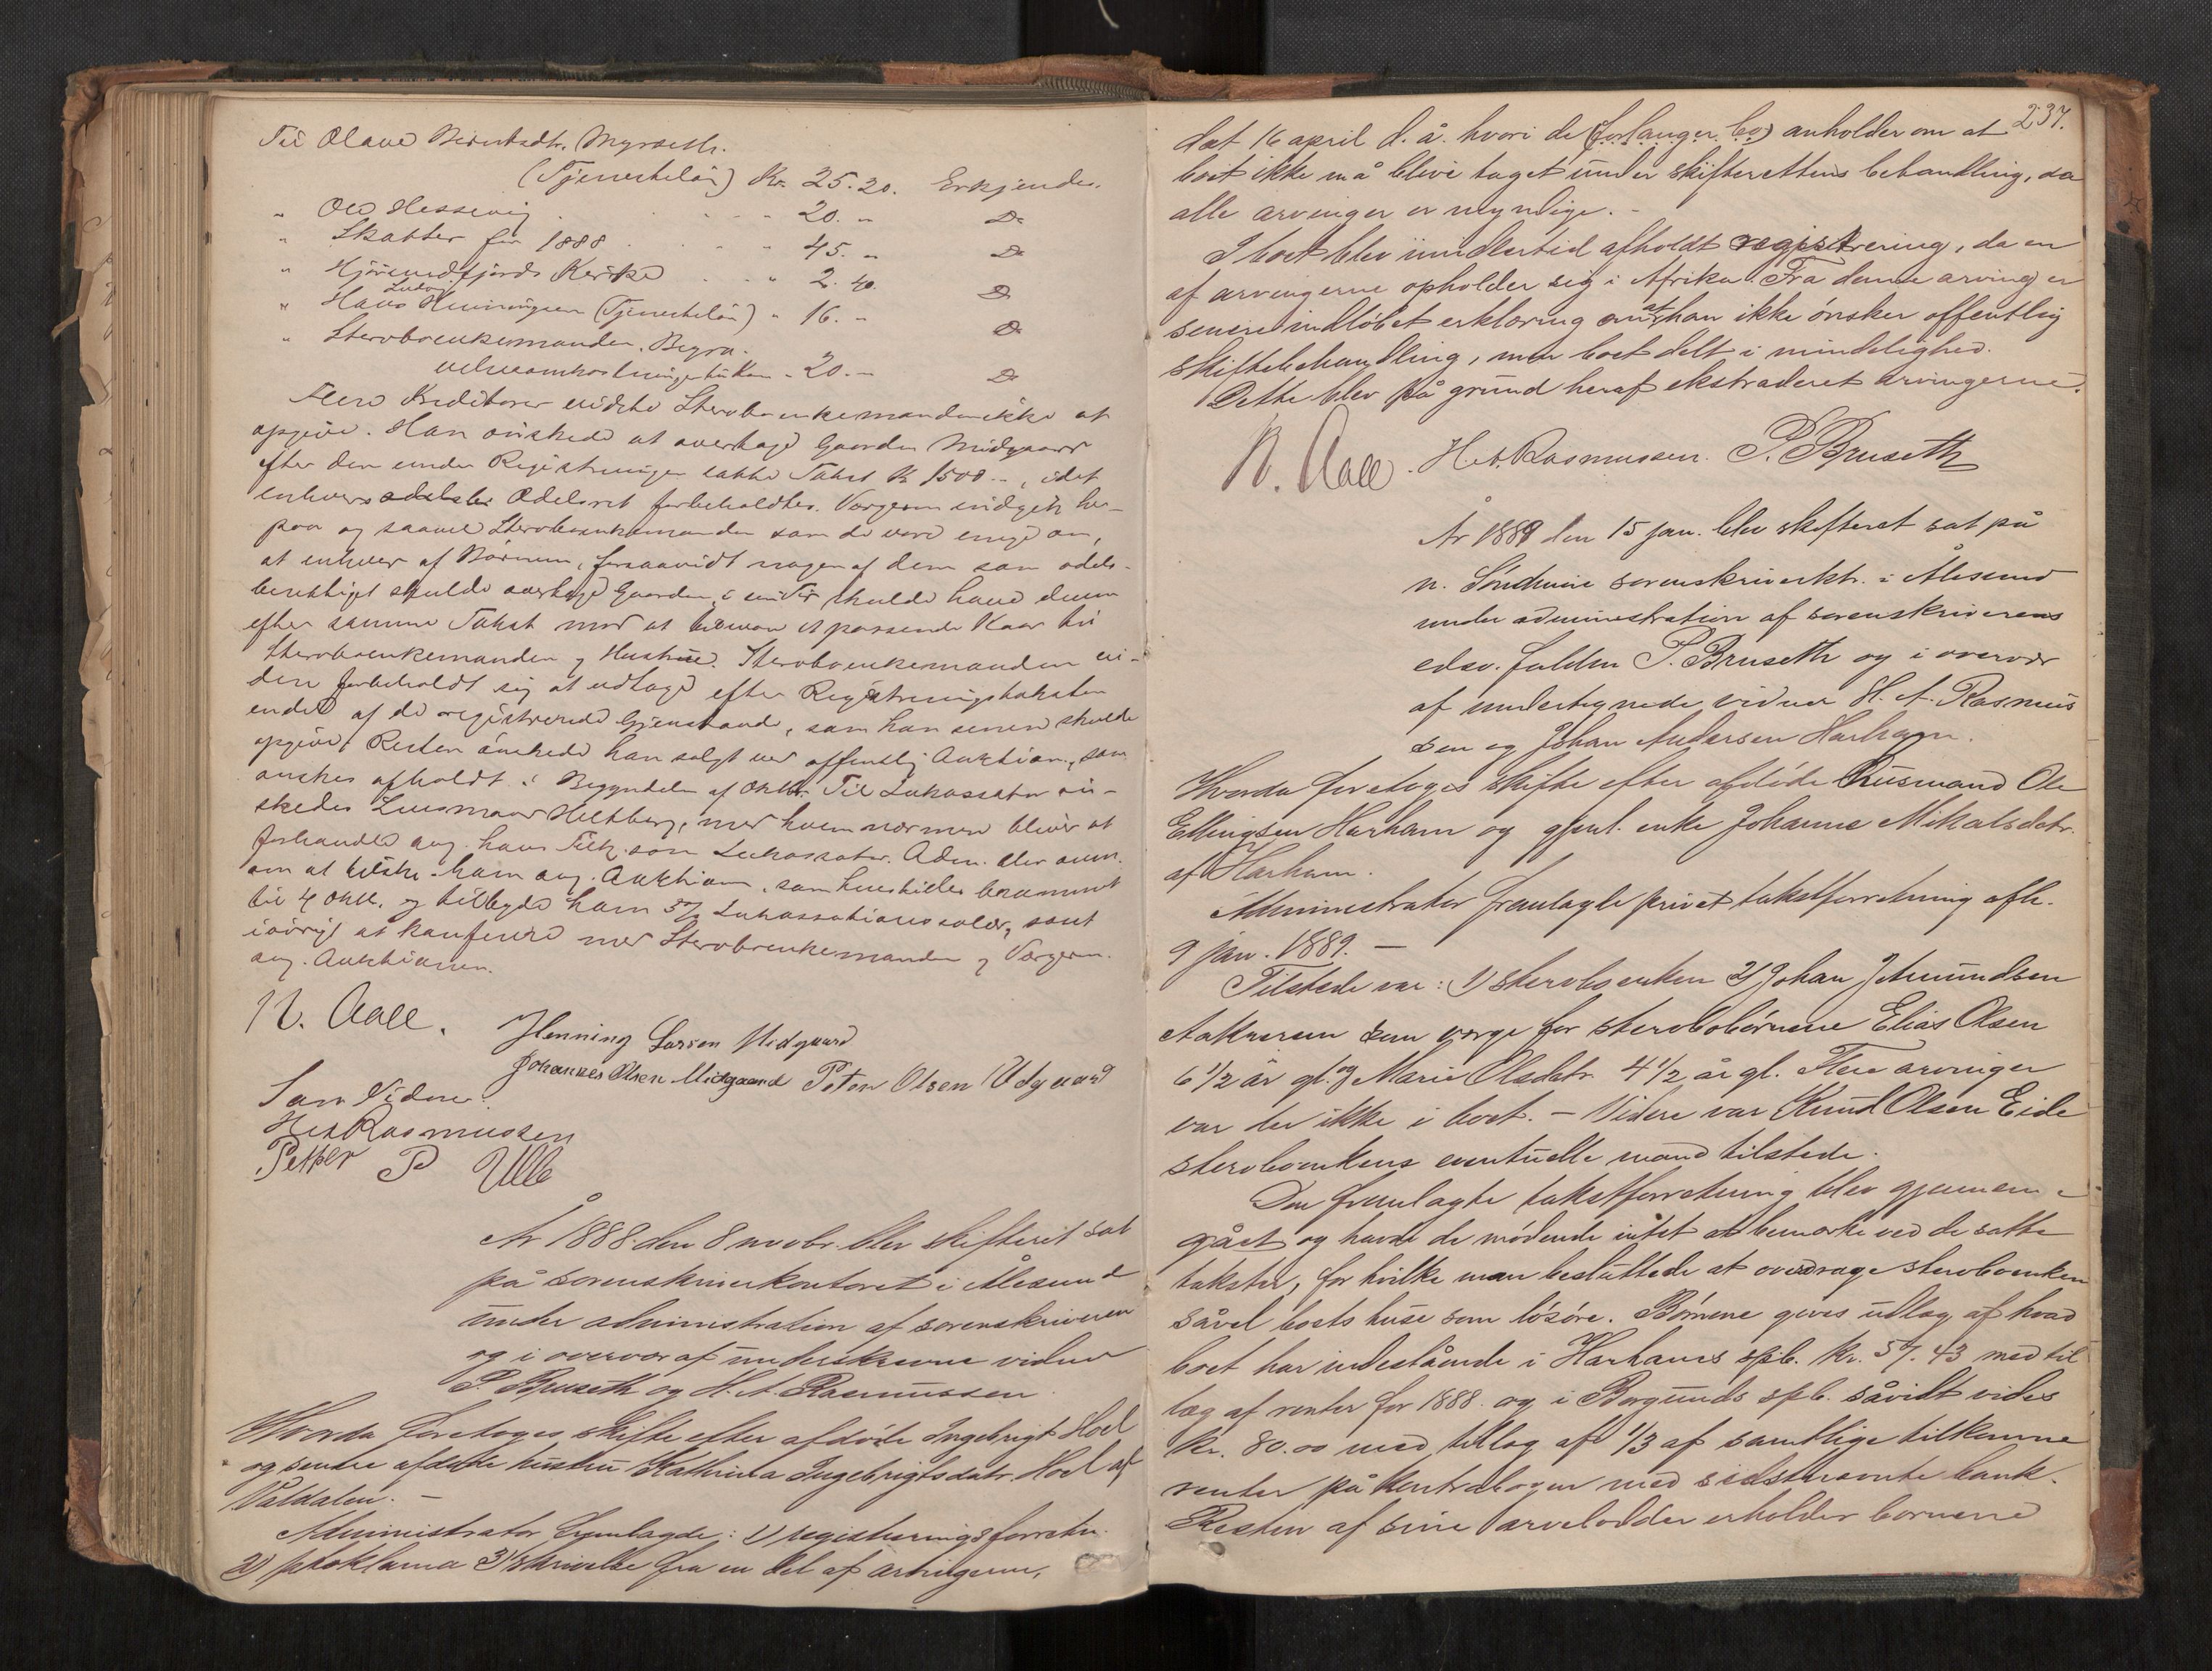 Til Olave Berntsdtr. Myrseth.
(Tjenerløn) Kr. 25.20. Erkjendes.
" Ole Hessevig " 20. " Do
" Skatter for 1888 " 45. " Do
" Hjörundfjords Kirke " 2.40. Do
" Hans Ludvig Henningsen (Tjenerløn) " 16. " Do
" Sterboenkemanden, Begra-
velsesomkostninger til Kone " 20. " Do
Flere Kreditorer vidste Sterboenkemanden ikke at
opgive. Han ønskede at overtage Gaarden Midgaard
efter den under Registreringen satte Takst Kr 1500 , idet
enhver Odelsret forbeholdtes. Værgerne indgik her-
paa og saavel Sterboenkemanden som de vare enige om,
at enhver af Børnene, forsaavidt nogen af dem som odels-
berettiget skulde overtage Gaarden, skulde have denne
efter samme Takst mod at et passende Kaar til
Sterboenkemanden og Hustru. Sterboenkemanden vi-
dere forbeholdt sig at udtage efter Registreringstaksten
endel af de registrerede Gjenstande, som han senere skulde
opgive. Resten ønskede han solgt ved offentlig Auktion, som
ønskes afholdt i Begyndelsen af Oktbr. Til Inkassator øn-
skedes Lensmand Heltberg, med hvem nærmere bliver at
forhandle ang. hans som Inkassator. Adm. blev anm.
om at tilskr. ham ang. Auktionen, som berammet
til 4 Oktr. og tilbyde ham 5% Inkassationssalær, samt
iøvrigt at konferere med Sterboenkemanden og Værgerne
ang. Auktionen.
N. Aall. Henning Larsen Midgaard
Johannes Olsen Midgaard Peter Olsen Udgaard
Som Vidner:
H A Rasmussen
Petter P Ulle
År 1888 den 8 novbr. blev skifteret sat
på sorenskriverkontoret i Ålesund
under administration af sorenskriveren
og i overvær af underskrevne vidner
P. Bruseth og H. A. Rasmussen
Hvorda foretoges skifte efter afdöde Ingebrigt Hoel
og senere afdøde hustru Kathrina Ingebrigtsdatr. Hoel af
Valdalen. –
Administrator fremlagde: 1) registreringsforretn.
2) proklama 3) skrivelse fra en del af arvingerne,
237.
dat 16 april d. å. hvori de (forlanger bo) anholder om at
boet ikke må blive taget under skifterettens behandling, da
alle arvinger er myndige. –
I boet blev imidlertid afholdt registrering, da en
af arvingerne opholder sig i Afrika. Fra denne arving er
senere indløbet erklæring at han ikke ønsker offentlig
skiftebehandling, men boet delt i mindelighed.
Dette blev på grund heraf ekstraderet arvingerne.
N. Aall. H. A. Rasmussen. P. Bruseth
År 1889 den 15 jan. blev skifteret sat på
n. Søndmøre sorenskriverktr. i Ålesund
under administration af sorenskriverens
edsv. fuldm P. Bruseth og i overvær
af undertegnede vidner H. A. Rasmus
sen og Johan Andersen Harham.
Hvorda foretoges skifte efter afdöde husmand Ole
Ellingsen Harham og gjenl. enke Johanne Mikalsdatr.
af Harham.
Administrator fremlagde privat takstforretning afh.
9 jan. 1889. –
Tilstede var: 1) sterboenken 2) Johan Jetmundsen
Aakvrem som værge for sterbobørnene Elias Olsen
6 1/2 år gl. og Marie Olsdatr. 4 1/2 år gl. Flere arvinger
var der ikke i boet. – Videre var Knud Olsen Eide
sterboenkens eventuelle mand tilstede.
Den fremlagte takstforretning blev gjennem-
gået og havde de mødende intet at bemærke ved de satte
takster, for hvilke man besluttede at overdrage sterboenken
såvel boets huse som løsøre. Børnene gives udlag af hvad
boet har indestående i Harhams spb. kr. 57.43 med til
læg af renter for 1888 og i Borgunds spb. såvidt vides
kr. 80.00 med tillæg af 1/3 af samtlige tilkomne
renter på kontrabogen med sidstnævnte bank.
Resten af sine arvelodder erholder børnene